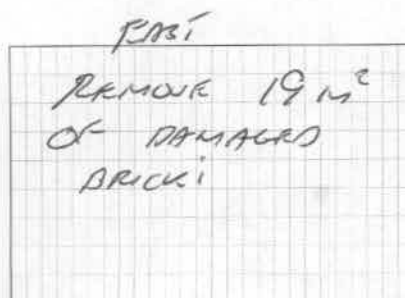 EAST
REMOVE 19 m²
OF DAMAGED
BRICK: